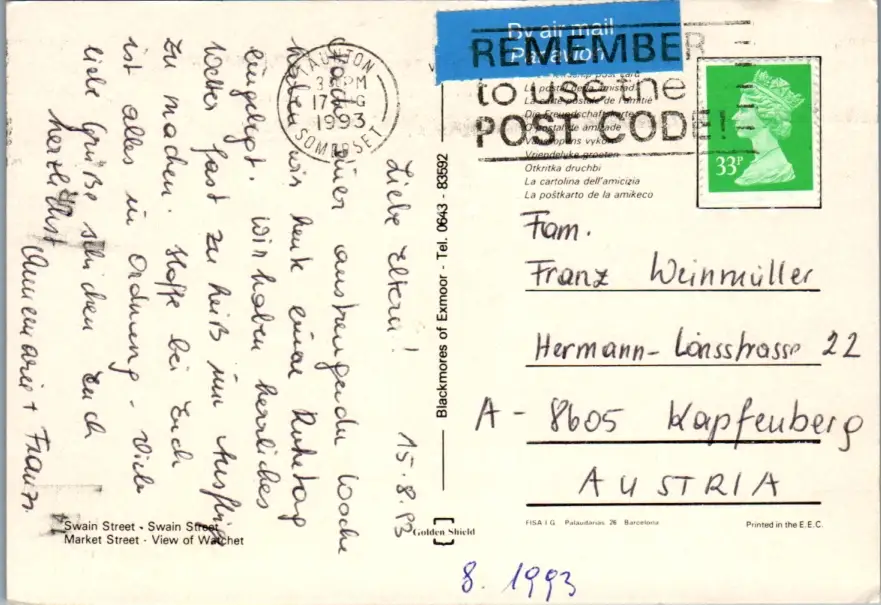 Liebe Eltern! 15.8.93
Nach einer anstrengenden Woche
haben wir heute einen Ruhetag
eingelegt. Wir haben herrliches
Wetter fast zu heiß um Ausflüge
zu machen. Hoffe bei Euch
ist alles in Ordnung - Viele
liebe Grüße schicken Euch
herzlichst
Annemarie + Franz.
Swain Street - Swain Street
Market Street - View of Watchet
Blackmores of Exmoor - Tel. 0643 - 83592
Golden Shield
TAUNTON
PM
17
1993
SOMERSET
By air mail
Par avion
REMEMBER
to use the
POST CODE!
33P
La postal de la amistad
La carte postale de l'amitié
Die Freundschaft
O postal de amizade
Vriendelijke groeten
Otkritka druchbi
La cartolina dell'amicizia
La poŝtkarto de la amikeco
Fam.
Franz Weinmüller
Hermann-Lönsstrasse 22
A - 8605 Kapfenberg
AUSTRIA
FISA I G Palaudarias 26 Barcelona
Printed in the E.E.C.
8. 1993